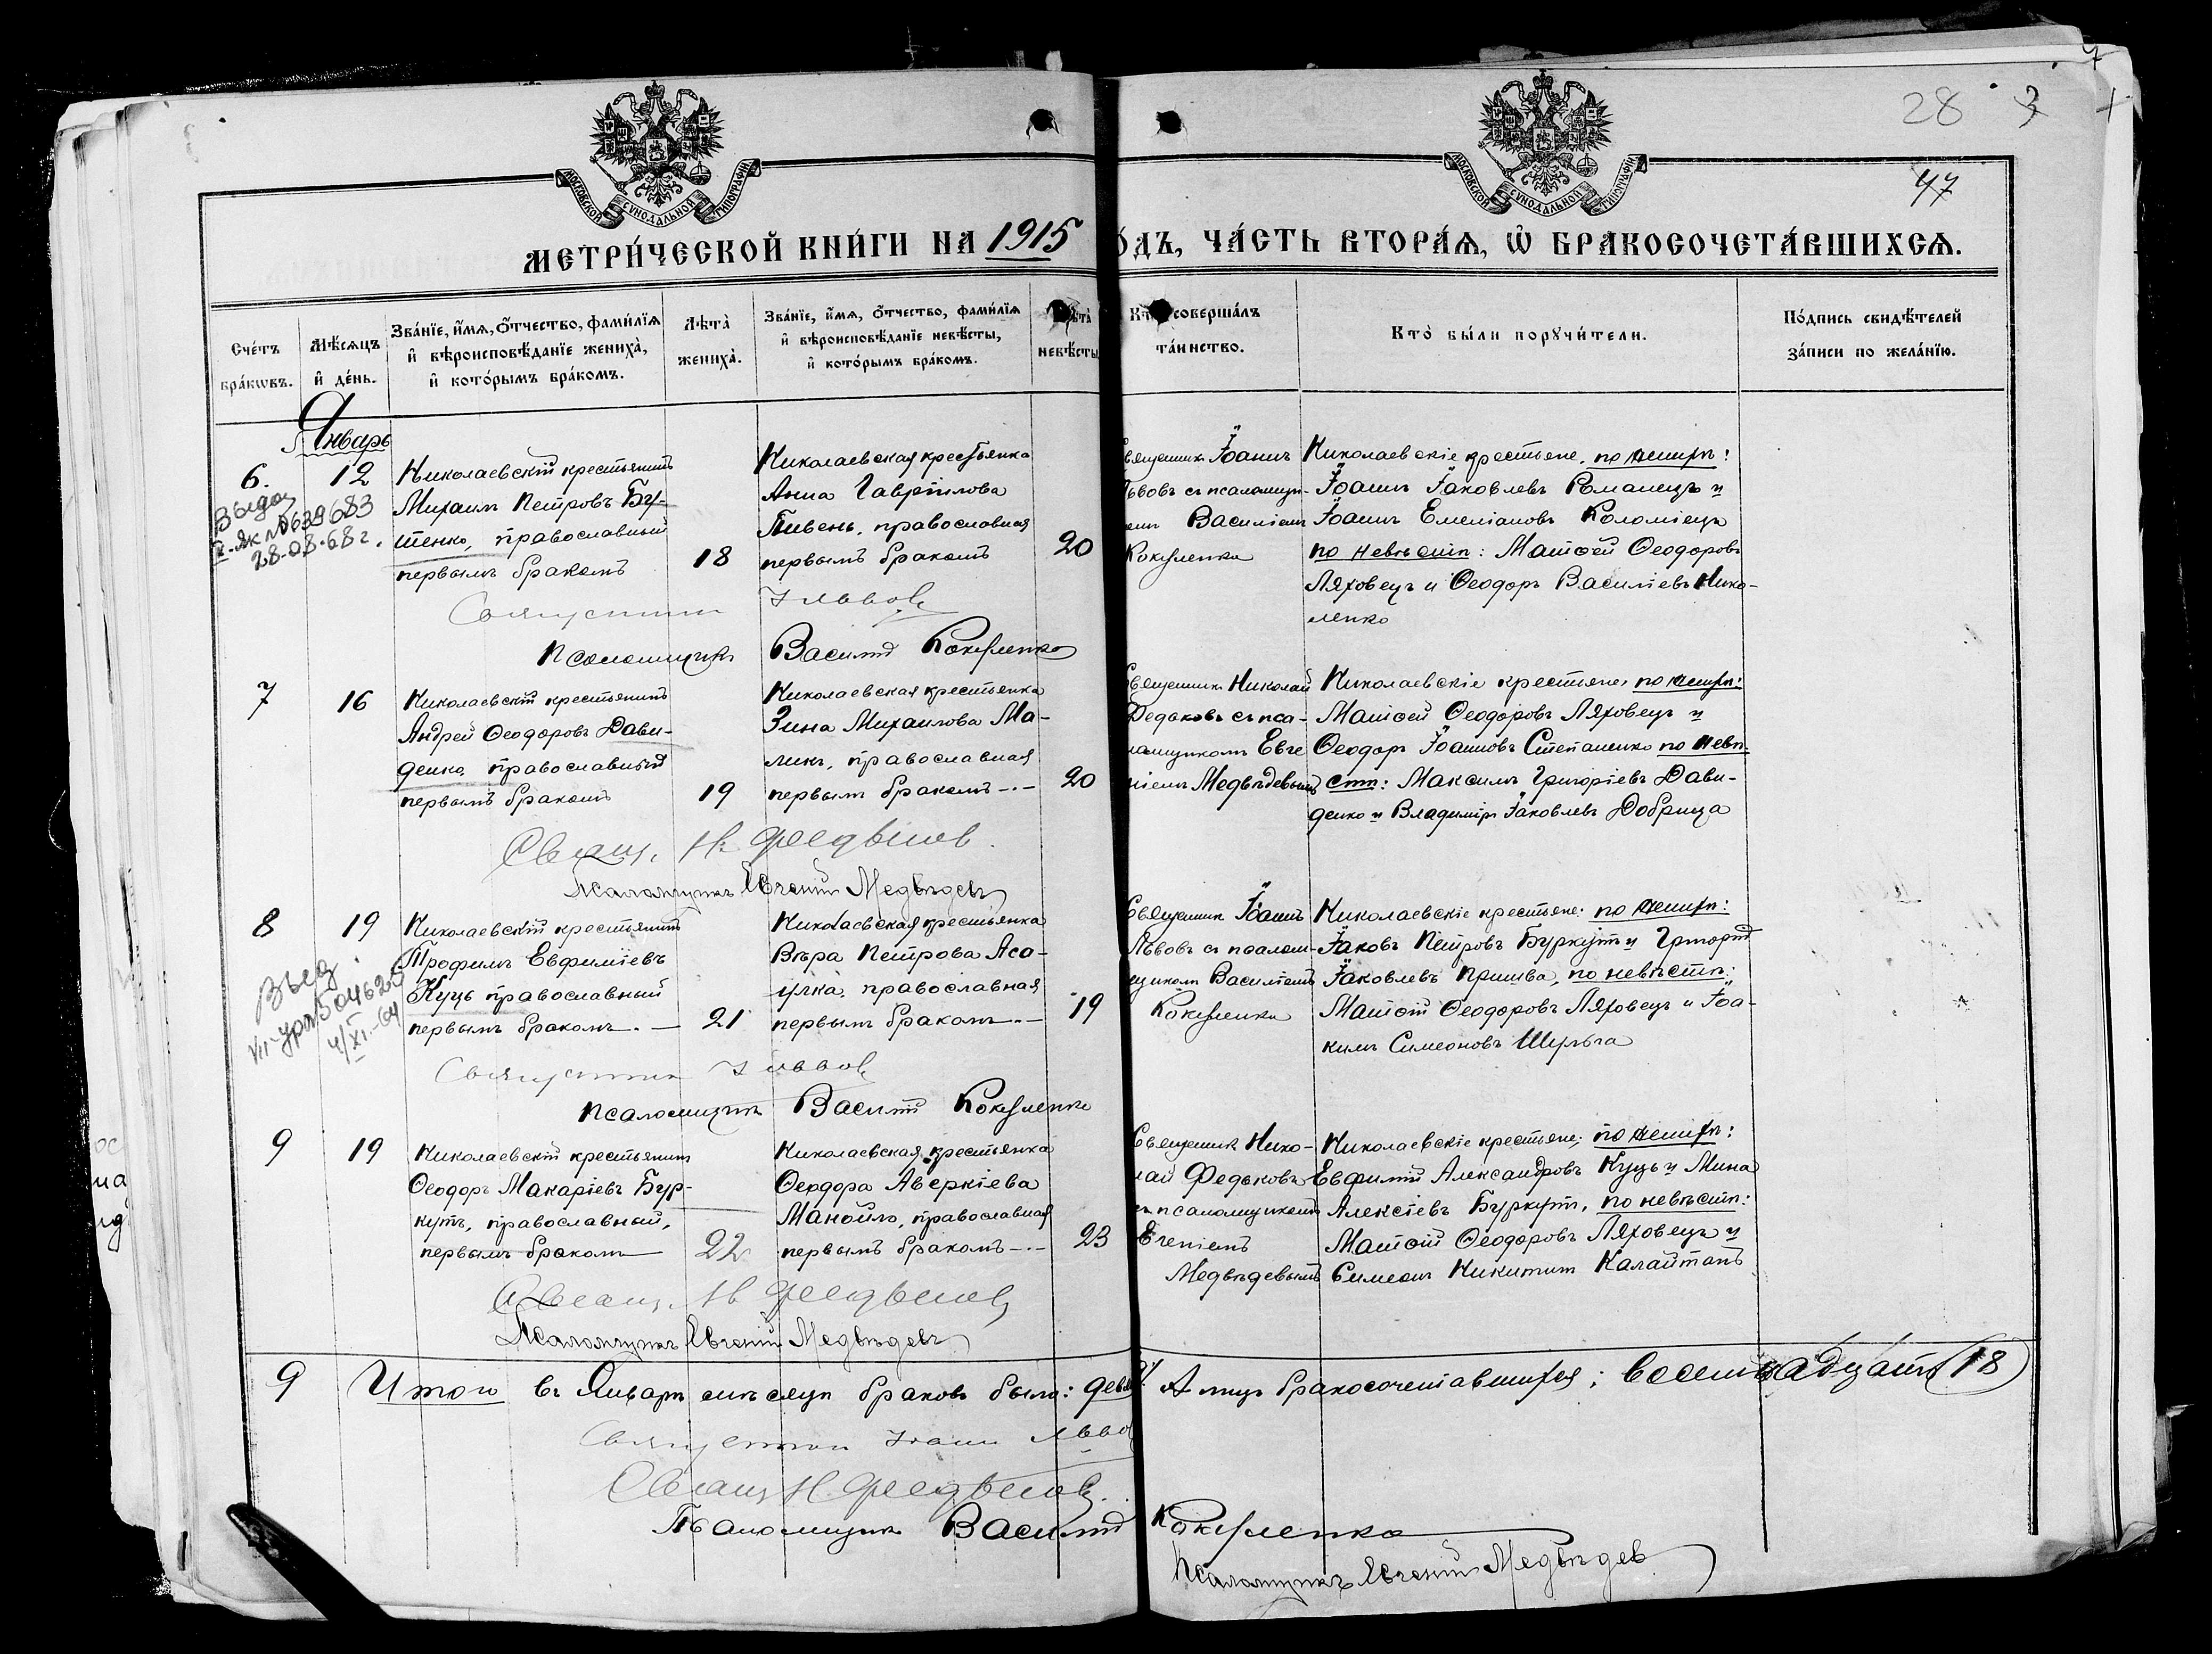 28 3
47
МОСКОВСКОЙ СѴНОДАЛЬНОЙ ТИПОГРАФІИ
МОСКОВСКОЙ СѴНОДАЛЬНОЙ ТИПОГРАФІИ
МЕТРИ́ЧЕСКОЙ КНИ́ГИ НА 1915
О́ДЪ, ЧА́СТЬ ВТОРА́Ѧ, Ѡ҆ БРАКОСОЧЕТА́ВШИХСѦ.
Сче́тъ
бра́кѡвъ.
Мѣ́сяцъ
и҆ де́нь.
Зва́нїе, и҆́мѧ, ѻ҆́тчество, фами́лїѧ
и҆ вѣроисповѣ́данїе жениха̀,
и҆ кото́рымъ бра́комъ.
Лѣта̀
жениха̀.
Зва́нїе, и҆́мѧ, ѻ҆́тчество, фами́лїѧ
и҆ вѣроисповѣ́данїе невѣ́сты,
и҆ кото́рымъ бра́комъ.
невѣ́сты
соверша́лъ
та́инство.
Кто̀ бы́ли порꙋчи́тели.
По́дпись свидѣ́телей
за́писи по жела́нїю.
Январь
6.
12
Николаевскій крестьянинъ
Михаилъ Петровъ Бу-
тенко, православный
первымъ бракомъ
18
Николаевская крестьянка
Анна Гавріилова
Пивень, православная
первымъ бракомъ
20
Іоаннъ
Львовъ съ псаломщи-
Василіемъ
Николаевскіе крестьяне, по женихѣ:
Іоаннъ Іаковлевъ Романецъ и
Іоаннъ Емеліановъ Коломіецъ
по невѣстѣ: Матѳей Ѳеодоровъ
Ляховецъ и Ѳеодоръ Василіевъ Нико-
ленко
28.08.68 г.
Священникъ І Львовъ
Псаломщикъ Василій
7
16
Николаевскій крестьянинъ
Андрей Ѳеодоровъ Дави-
денко, православный
первымъ бракомъ
19
Николаевская крестьянка
Зина Михаилова Ма-
ликъ, православная
первымъ бракомъ -.-
20
Священникъ Николай
Федьковъ съ пса-
ломщикомъ Евге
ніемъ Медвѣдевымъ
Николаевскіе крестьяне, по женихѣ:
Матѳей Ѳеодоровъ Ляховецъ и
Ѳеодоръ Іоанновъ Степаненко по невѣ-
стѣ: Максимъ Григоріевъ Дави-
денко и Владиміръ Іаковлевъ Добрица
Свящ. Н. Федьков
Псаломщикъ Евгеній Медвѣдевъ
8
19
Николаевскій крестьянинъ
Трофимъ Евфиміевъ
Куць православный
первымъ бракомъ. —
21
Николаевская крестьянка
Вѣра Петрова Аса-
улка, православная
первымъ бракомъ. —
19
Священникъ Іоаннъ
Львовъ съ псалом-
щикомъ Василіемъ
Николаевскіе крестьяне: по женихѣ:
Іаковъ Петровъ Буркутъ и Григорій
Іаковлевъ Пришва, по невѣстѣ:
Матѳій Ѳеодоровъ Ляховецъ и Іоа-
кимъ Симеоновъ Шульга
4/XI-64
Священникъ І Львовъ
Псаломщикъ Василій
9
19
Николаевскій крестьянинъ
Ѳеодоръ Макаріевъ Бур-
кутъ, православный,
первымъ бракомъ
22
Николаевская крестьянка
Ѳеодора Аверкіева
Манойло, православная
первымъ бракомъ -.-
23
Священникъ Нико-
лай Федьковъ
съ псаломщикомъ
Евгеніемъ
Медвѣдевымъ
Николаевскіе крестьяне; по женихѣ:
Евфимій Александровъ Куць и Мина
Алексіевъ Буркутъ, по невѣстѣ:
Матѳій Ѳеодоровъ Ляховецъ и
Симеонъ Никитинъ Калайтанъ
Свящ. Н Федьковъ
Псаломщикъ Евгеній Медвѣдевъ
9
Итого въ Январѣ мѣсяцѣ браковъ было: девя
А лицъ бракосочетавшихся; восемнадцать (18)
Священникъ Іоаннъ Львов
Свящ Н. Федьковъ.
Псаломщикъ Василій
Псаломщикъ Евгеній Медвѣдев